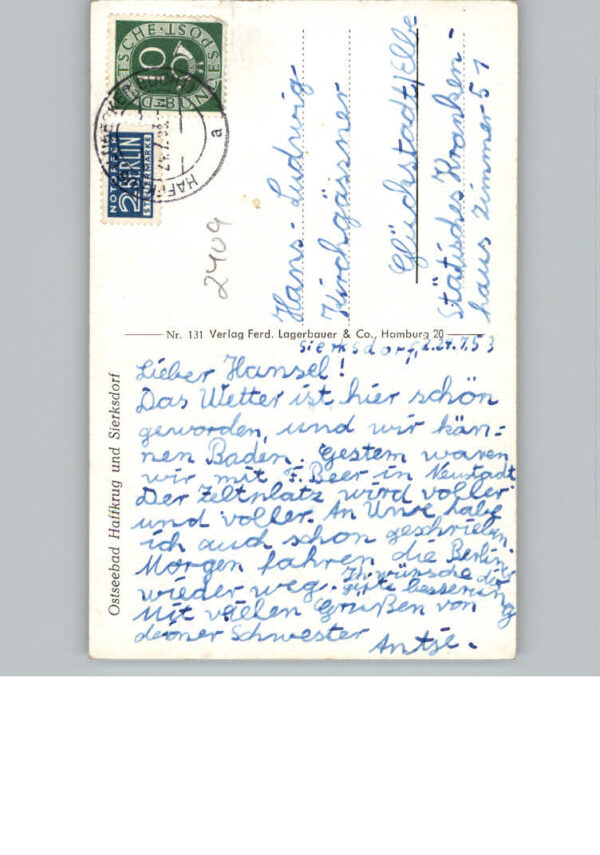 DEUTSCHE BUNDESPOST
10
NOTOPFER
2 BERLIN
STEUERMARKE
HAFFK
24.7.53
a
2409
Hans-Ludwig
Kirchgässner
Glückstadt/Elbe
Städisches Kranken-
haus Zimmer 51
Nr. 131 Verlag Ferd. Lagerbauer & Co., Hamburg 20
Ostseebad Haffkrug und Sierksdorf
Sierksdorf, 24.7.53
Lieber Hansel!
Das Wetter ist hier schön
geworden, und wir kän=
nen Baden. Gestern waren
wir mit F. Beer in Neustadt
Der Zeltplatz wird voller
und voller. An Uwe habe
ich auch schon geschrieben.
Morgen fahren die Berliner
wieder weg. Ich wünsche dir
gute besserung
Mit vielen Grüßen von
deiner Schwester
Antje.